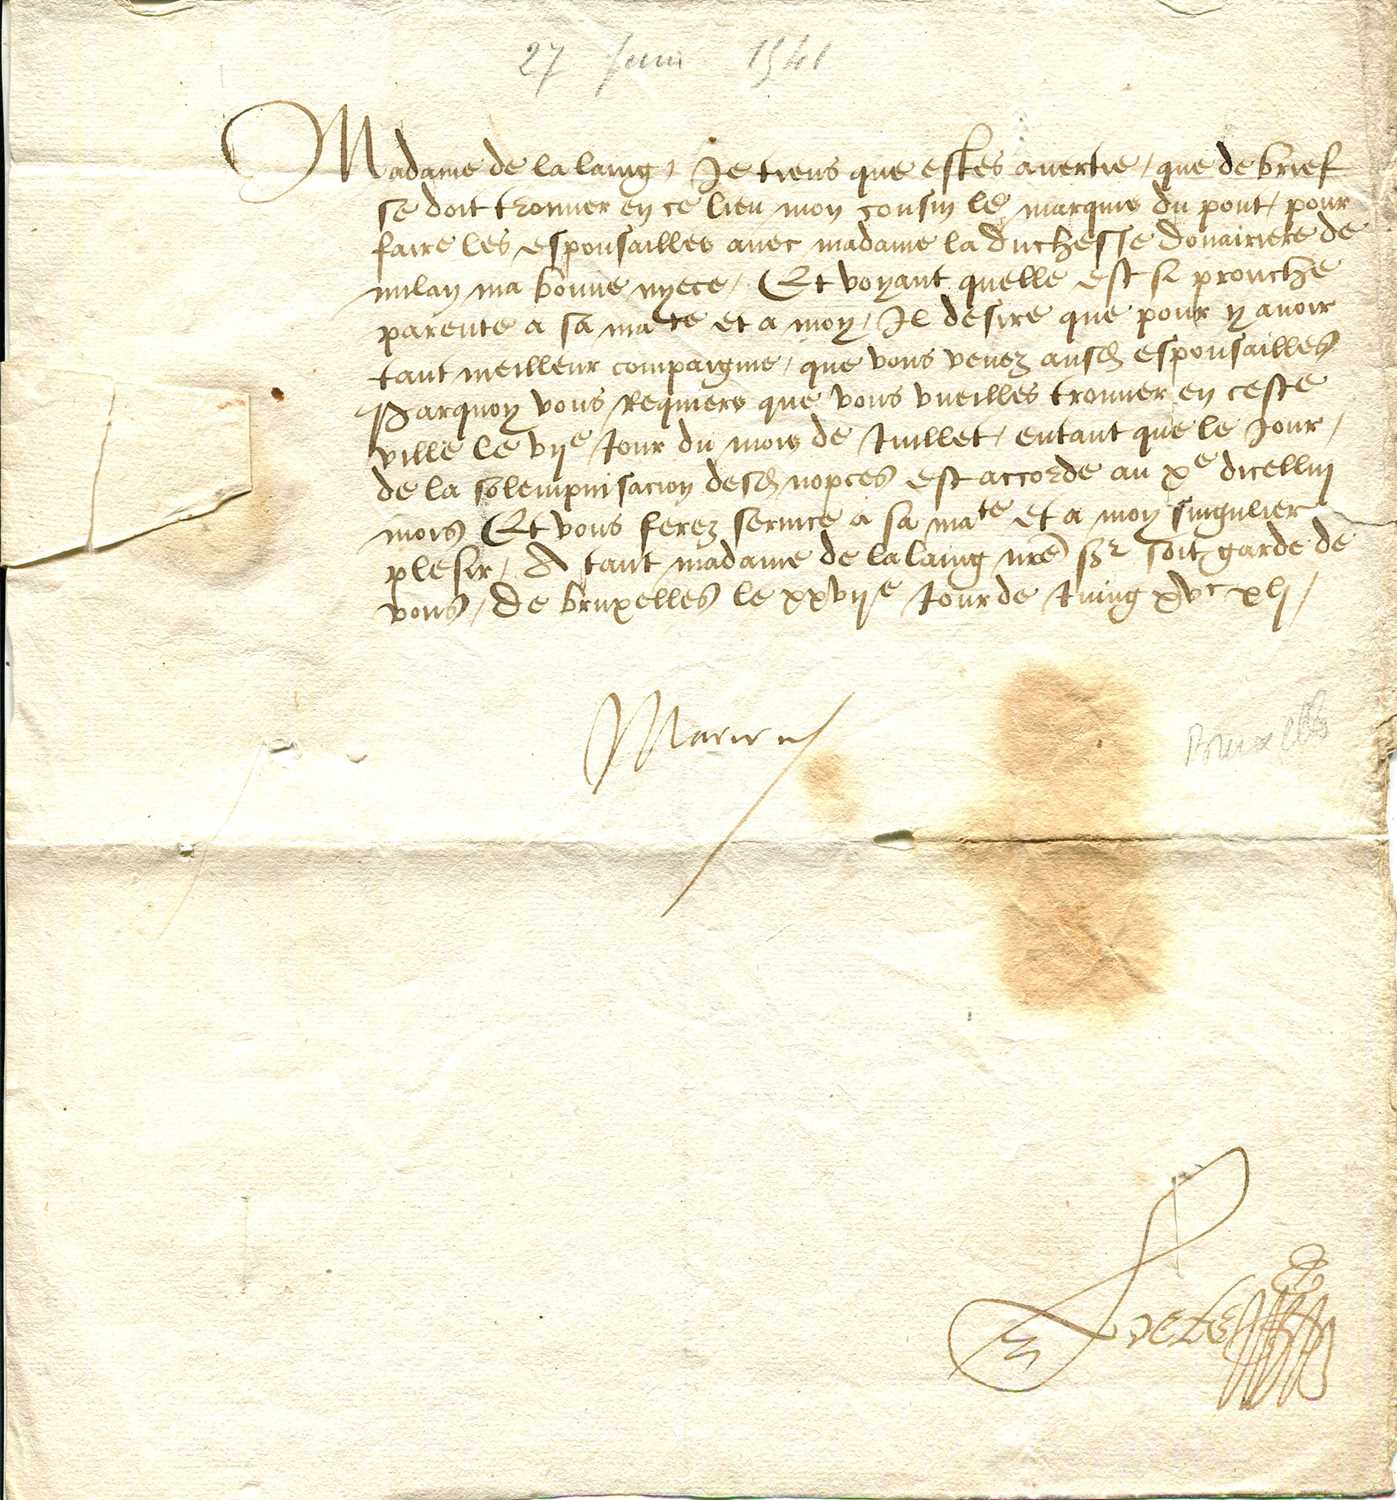 27 Juin 1541
Madame de lalaing, Je tiens que estes auertie, que de brief
se doit trouuer en ce lieu mon cousin le marquis du pont, pour
faire les esponsailles auec madame la duchesse douairiere de
milan ma bonne nyece, Et voyant quelle est si prouche
parente a sa mate et a moy, Il desire que pour y auoir
tant meilleur compaignie, que vous venez ausd esponsailles
Parquoy vous Requiers que vous vueilles trouuer en ceste
ville le vije Jour du mois de Juillet, entant que le Jour,
de la solempnisacion desd nopces est accorde au xe dicelluy
mois Et vous ferez seruice a sa mate et a moy singulier
plesir, A tant madame de lalaing nre sr soit garde de
vous, De bruxelles le xxvije Jour de Juing xvc xlj,
Marie
Bruxelles